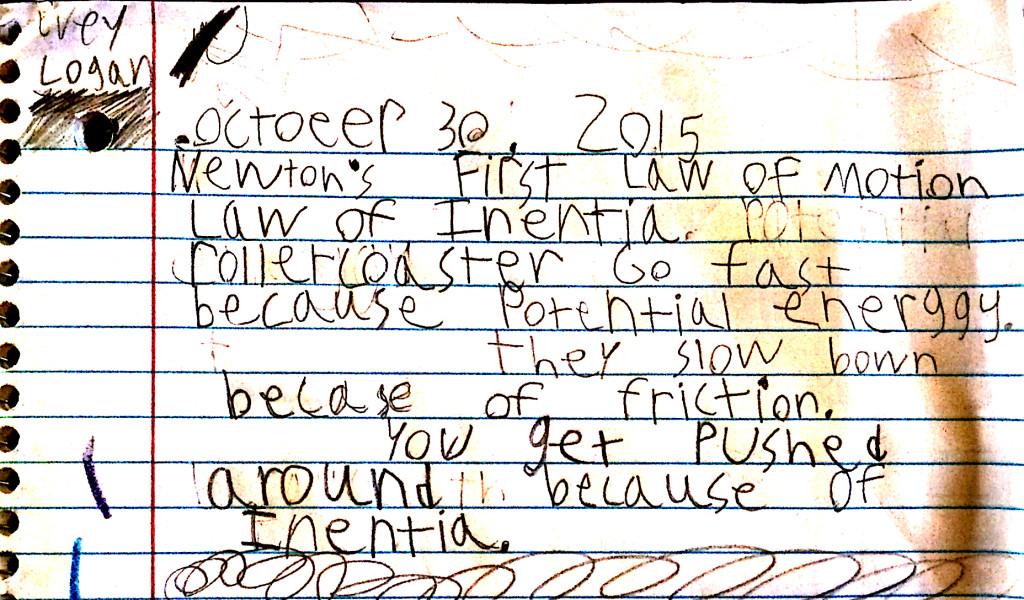 Ivey
Logan
October 30, 2015
Newton's First Law of Motion
Law of Inentia.
rollercoaster Go fast
because Potential energgy.
they slow bown
becase of friction.
You get Pushed
around because of
Inentia.